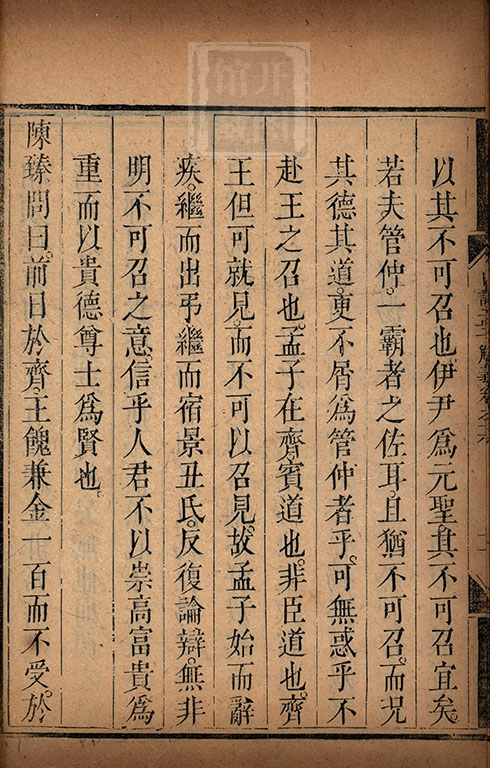 以其不可召也伊尹爲元聖其不可召宜矣
若夫管仲一霸者之佐耳且猶不可召而况
其德其道更不屑爲管仲者乎可無惑乎不
赴王之召也孟子在齊賓道也非臣道也齊
王但可就見而不可以召見故孟子始而辭
疾繼而出弔繼而宿景丑氏反復論辯無非
明不可召之意信乎人君不以崇高富貴爲
重而以貴德尊士爲賢也
陳臻問曰前日於齊王餽兼金一百而不受於